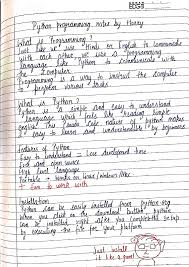 Python programming notes by Harry
What is Programming?
Just like we use Hindi or English to communicate
with each other, we use a Programming
language like Python to communicate with
the Computer.
Programming is a way to instruct the computer
to perform various tasks.
What is Python?
Python is a simple and easy to understand
language which feels like reading simple
English. This Pseudo code nature of python makes
it easy to learn and understandable by beginners
Features of Python
Easy to understand = Less development time
Free and open source
High level language
Portable = Works on Linux/Windows/Mac
+ Fun to work with
Installation
Python can be easily installed from python.org
When you click on the download button, python
can be installed right after you complete the setup
by executing the file for your platform
Just install
it like a game!